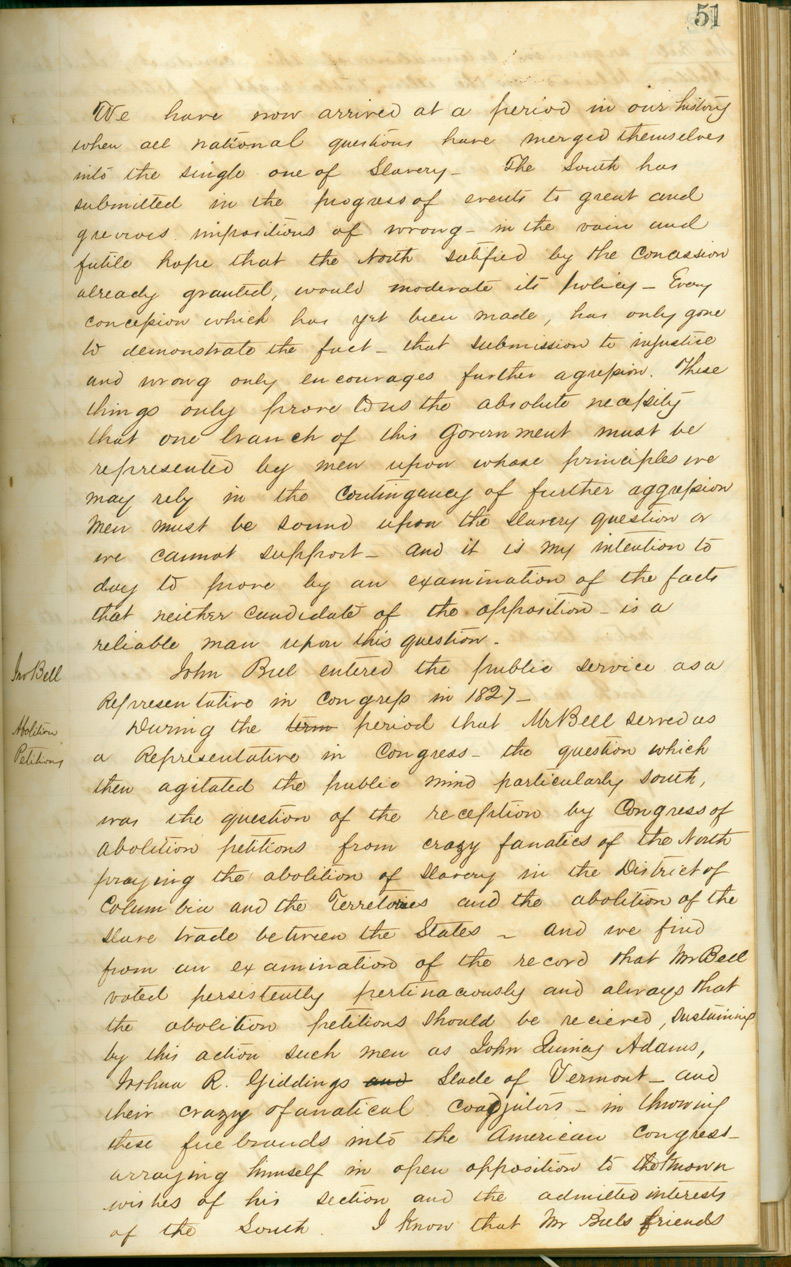 51
We have now arrived at a period in our history
when all national questions have merged themselves
into the single one of Slavery – The South has
submitted in the progress of events to great and
grevious impositions of wrong – in the vain and
futile hope that the North satified by the concession
already granted, would moderate its policy – Every
concession which has yet been made, has only gone
to demonstrate the fact – that submission to injustice
and wrong only encourages further agression. These
things only prove to us the absolute necessity
that one branch of this Government must be
represented by men upon whose principles we
may rely in the contingency of further aggression
Men must be sound upon the slavery question or
we cannot support – and it is my intention to
day to prove by an examination of the facts
that neither candidate of the opposition – is a
reliable man upon this question.
Jno Bell
John Bell entered the public service as a
Representative in Congress in 1827 –
Abolition
Petitions
During the term period that Mr Bell served as
a Representative in Congress – the question which
then agitated the public mind particularly South,
was the question of the reception by Congress of
abolition petitions from crazy fanatics of the North
praying the abolition of slavery in the District of
Columbia and the Territories and the abolition of the
slave trade between the States – and we find
from an examination of the record that Mr Bell
voted persistently pertinaciously and always that
the abolition petitions should be recieved, sustaining
by this action such men as John Quincy Adams,
Joshua R. Giddings and Slade of Vermont – and
their crazy fanatical coadjutors – in throwing
these fire brands into the American Congress –
arraying himself in open opposition to the known
wishes of his section and the admitted interests
of the South. I know that Mr Bells friends